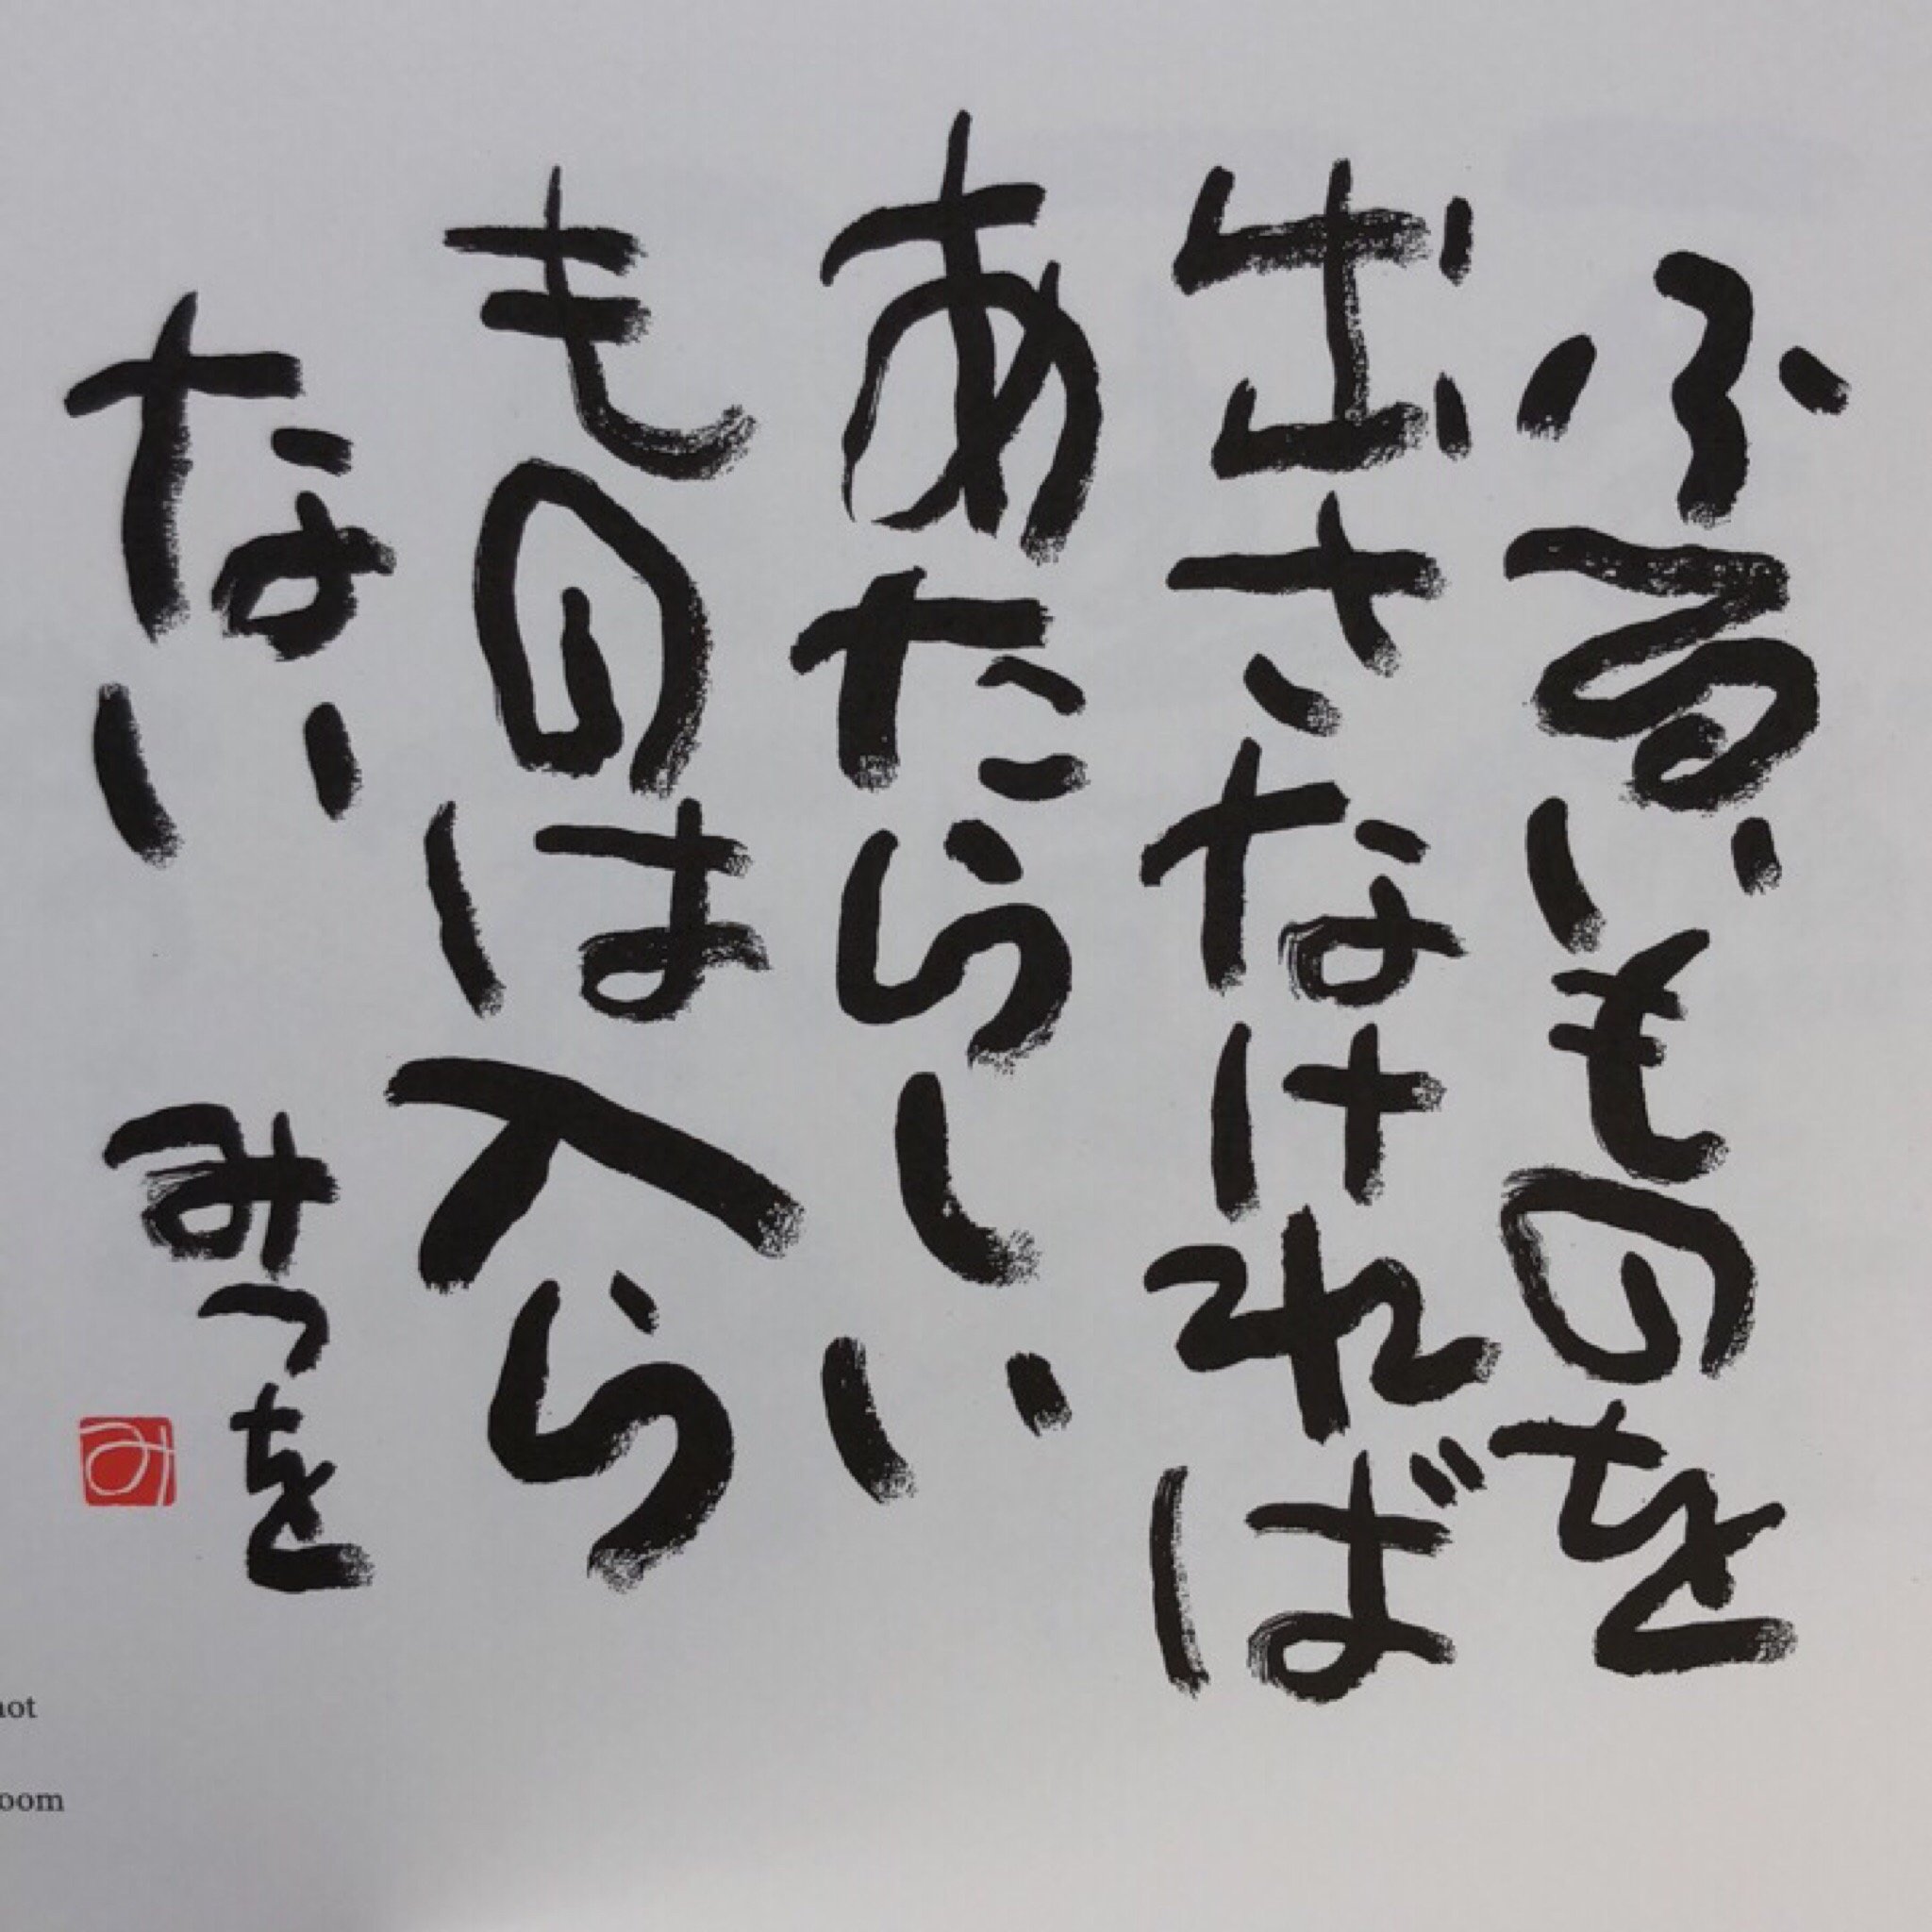 ふるいものを
出さなければ
あたらしい
ものは入ら
ない
みつを
み
not
oom